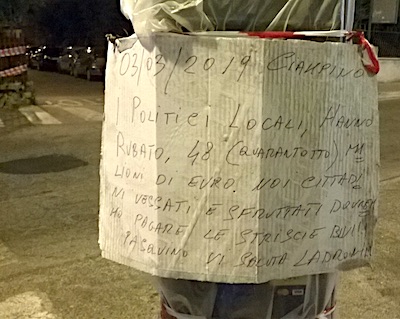 03/03/2019 CIAMPINO
I POLITICI LOCALI, HANNO
RUBATO, 48 (QUARANTOTTO) MI
LIONI DI EURO. NOI CITTADI
NI VESSATI E SFRUTTATI DOVREM
MO PAGARE LE STRISCIE BLU!!
PASQUINO VI SALUTA LADRONI!!